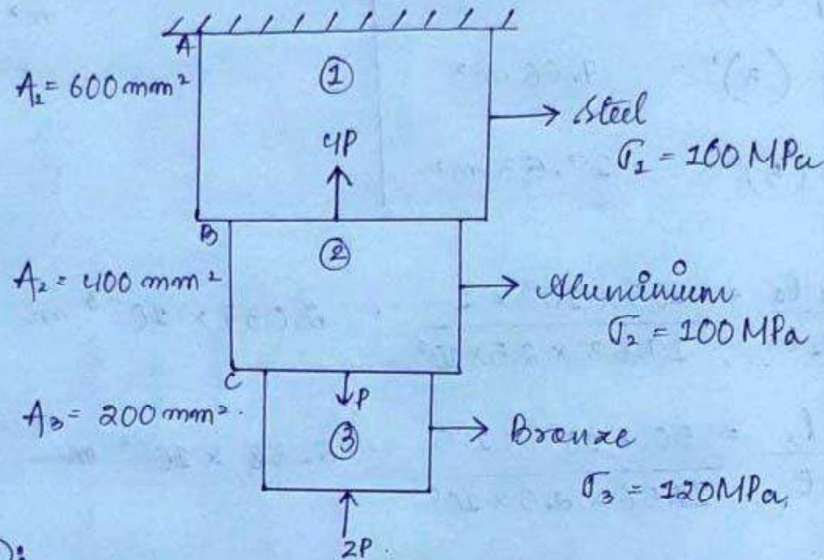 A
A₁ = 600 mm²
①
4P
Steel
σ₁ = 160 MPa
B
②
A₂ = 400 mm²
Aluminium
σ₂ = 100 MPa
C
P
A₃ = 200 mm².
③
Bronze
σ₃ = 120MPa,
2P.